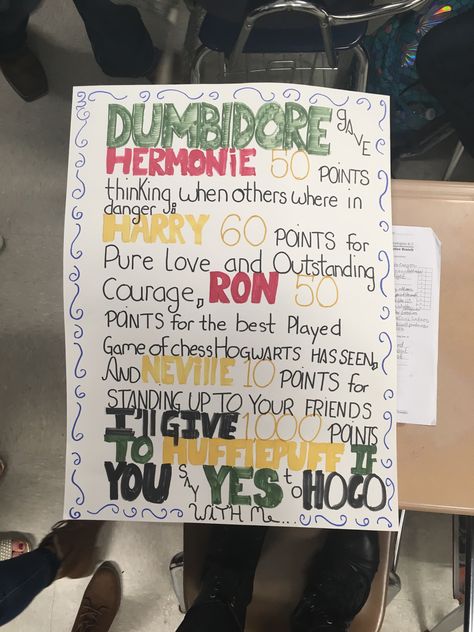 DUMBIDORE gave
HERMONIE 50 POINTS
thinking when others where in
danger;
HARRY 60 POINTS for
Pure Love and Outstanding
Courage, RON 50
POINTS for the best Played
Game of chess HOGWARTS HAS SEEN,
AND NEVILLE 10 POINTS for
STANDING UP TO YOUR FRIENDS
I'll GIVE 1000 POINTS
TO HUFFlEPUFF IF
YOU SAY YES to HOCO
WITH Me...